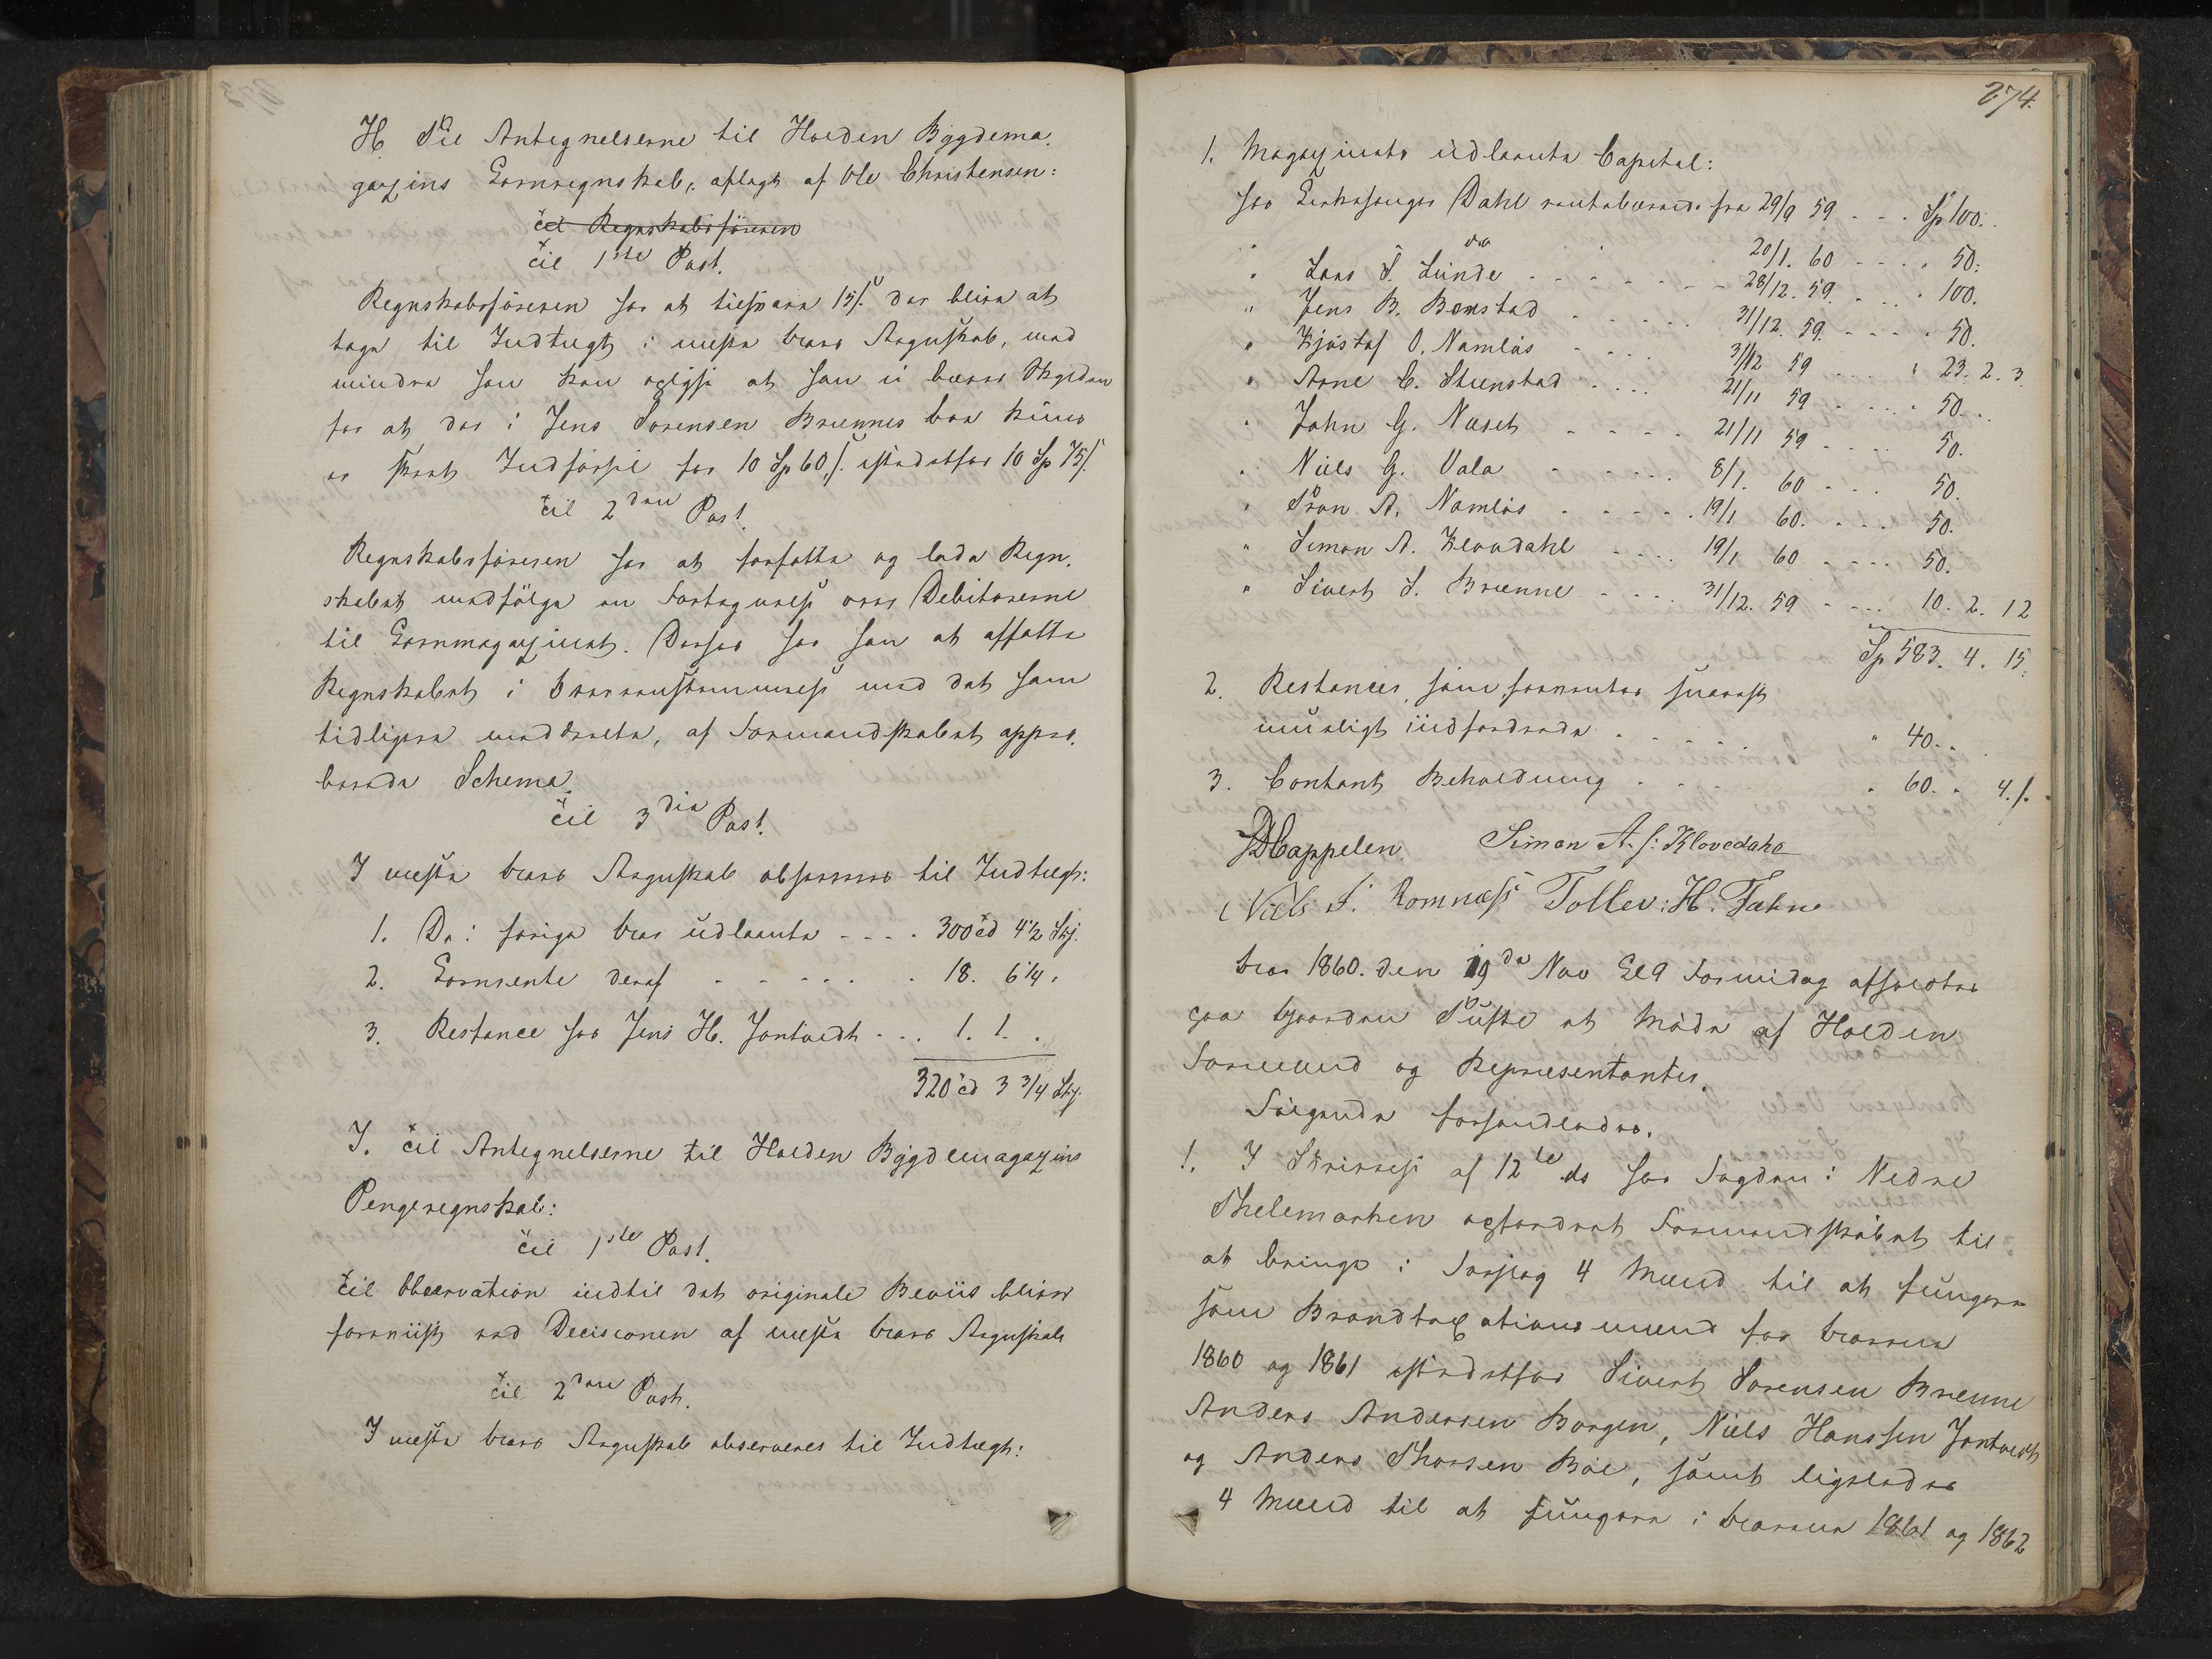 H. Til Antegnelserne til Holden Bygdema-
gazins Kornregnskab, aflagt af Ole Christensen:
til Regnskabsføreren
til 1ste Post.
Regnskabsføreren har at tilsvare 15 s. der bliver at
tage til Indtægt i næste Aars Regnskab, med
mindre han kan oplyse at han ei bærer Skylden
for at der i Jens Sørensen Brænnes Bøe kuns
er skeet Indførsel for 10 Sp 60 s. istedetfor 10 Sp 75 s.
til 2den Post.
Regnskabsføreren har at forfatte og lade Regn-
skabet medfølge en Fortegnelse over Debitorerne
til Kornmagazinet. Derhos har han at affatte
Regnskabet i Overeensstemmelse med det ham
tidligere meddeelte, af Formandskabet appro-
berede Schema.
til 3die Post.
I næste Aars Regnskab observeres til Indtægt:
1. De i forige Aar udlaante - - - 300 td 4 1/2 Skj.
2. Kornrente deraf - - - - - - 18. 6 1/4 .
3. Restance hos Jens H. Jontvedt - . . 1. 1. .
320 td 3 3/4 Skj.
I. til Antegnelserne til Holden Bygdemagazins
Pengeregnskab:
til 1ste Post.
til Observation indtil det originale Beviis bliver
foreviist ved Decisionen af næste Aars Regnskab
til 2den Post.
I næste Aars Regnskab observeres til Indtægt:
274.
1. Magazinets udlaante Capital:
hos Kirkesanger Dahl rentebærende fra 29/9 59 - - . Sp 100. .
" Lars T. Lunde - - do - - 20/1. 60 - - - . 50.
" Jens B. Bæmstad - - - - - 28/12. 59. - - . 100.
" Kjøstof O. Namløs - - - - 31/12. 59. - - - . 50.
" Arne C. Steenstad - - - 3/12 59 - - - " 23. 2. 3
" John G. Næset - - - - 21/11 59 - - - . 50. .
" Niels G. Vala - - - - - 21/11 59 - - - - 50.
" Tron A. Namløs - - - - - 8/1. 60 - - - 50.
" Simon A. Klovdahl - - - - 19/1 60. - - - 50.
" Sivert S. Brænne - - - - 19/1 60 - - - - 50.
31/12. 59 - - - 10. 2. 12
Sp 583. 4. 15.
2. Restancer, som forventes snarest
mueligt indfordrede - - - - - " 40. .
3. Contant Beholdning - - - - " 60. . 4 s.
D Cappelen Simon A. S: Klovedahl
Niels S. Romnæss Tollev: H. Tæhne
Aar 1860. den 19de Nov Kl 9 Formidag afholdtes
paa Gaarden Tufte et Møde af Holden
Formænd og Repræsentanter.
Følgende forhandledes.
1. I Skrivelse af 12te ds har Fogden i Nedre
Thelemarken opfordret Formandskabet til
at bringe i Forslag 4 Mænd til at fungere
som Brandtaxationsmænd for Aarene
1860 og 1861 istedetfor Sivert Sørensen Brenne
Anders Andersen Borgen, Niels Hanssen Jontvedt
og Anders Thorsen Bøe, samt ligeledes
4 Mænd til at fungere i Aarene 1861 og 1862